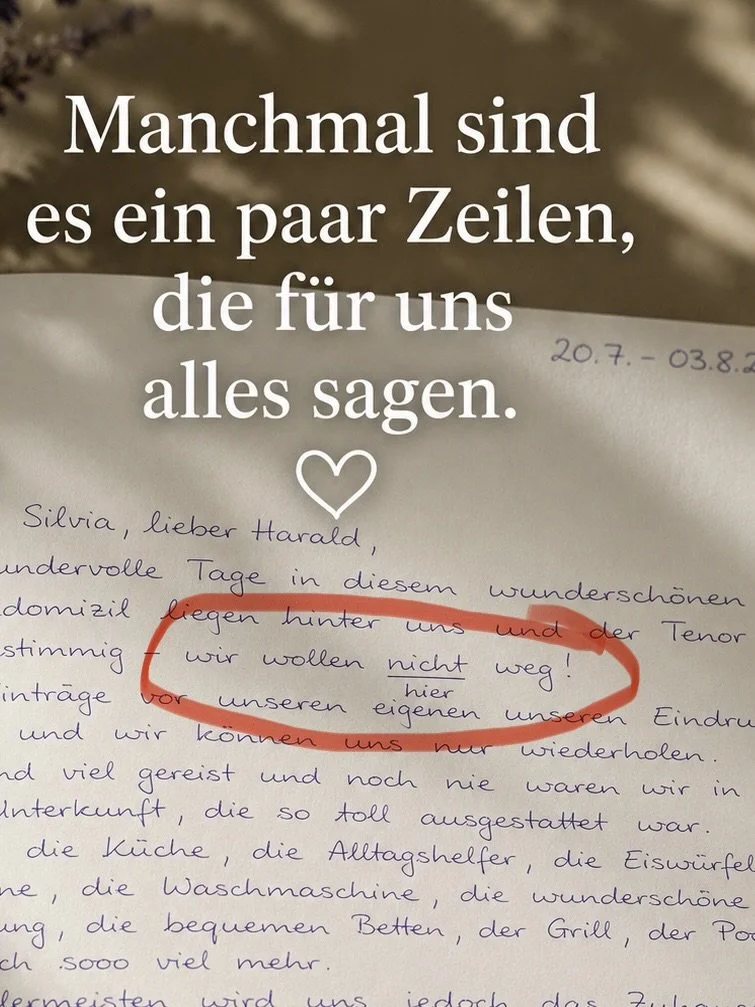 Manchmal sind
es ein paar Zeilen,
die für uns
alles sagen.
20.7. - 03.8.2
Silvia, lieber Harald,
undervolle Tage in diesem wunderschönen
domizil liegen hinter uns und der Tenor
stimmig - wir wollen nicht weg!
hier
inträge vor unseren eigenen unseren Eindru
und wir können uns nur wiederholen.
nd viel gereist und noch nie waren wir in
Unterkunft, die so toll ausgestattet war.
die Küche, die Alltagshelfer, die Eiswürfel
ne, die Waschmaschine, die wunderschöne
ung, die bequemen Betten, der Grill, der Poo
ch sooo viel mehr.
llermeisten wird uns jedoch das Zuhau